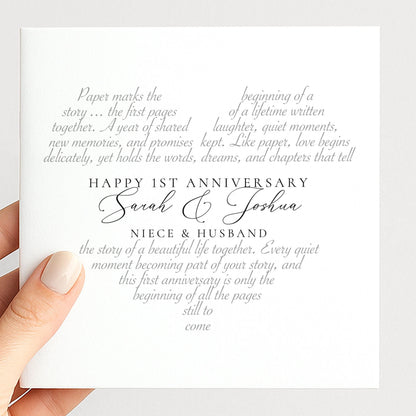 Paper marks the beginning of a
story ... the first pages of a lifetime written
together. A year of shared laughter, quiet moments,
new memories, and promises kept. Like paper, love begins
delicately, yet holds the words, dreams, and chapters that tell
HAPPY 1ST ANNIVERSARY
Sarah & Joshua
NIECE & HUSBAND
the story of a beautiful life together. Every quiet
moment becoming part of your story, and
this first anniversary is only the
beginning of all the pages
still to
come